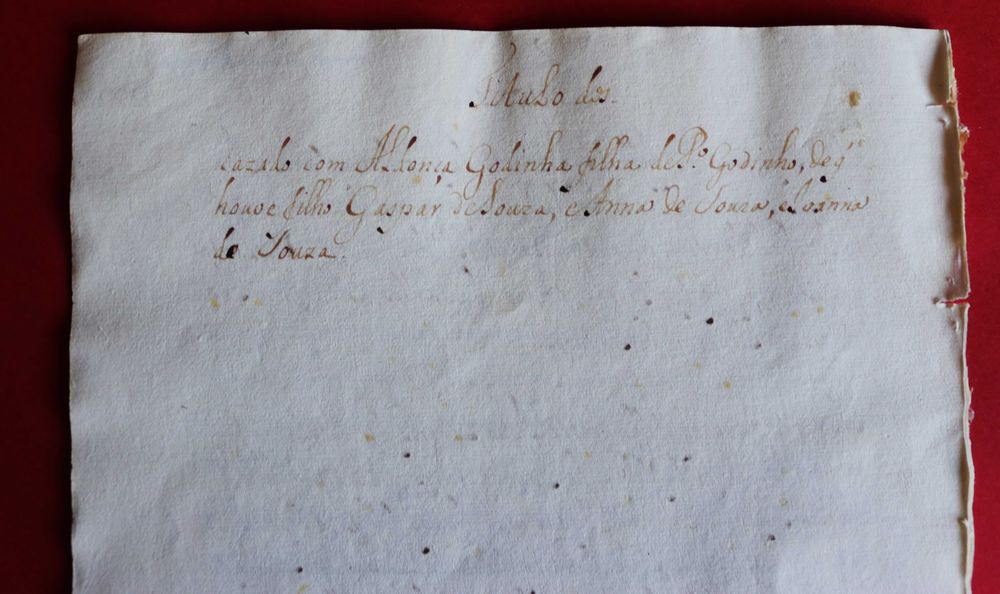 Titulo dos
cazado com Aldonça Godinha filha de P.º Godinho, de q.m
houve filho Gaspar de Souza, e Anna de Souza, e Joanna
de Souza.